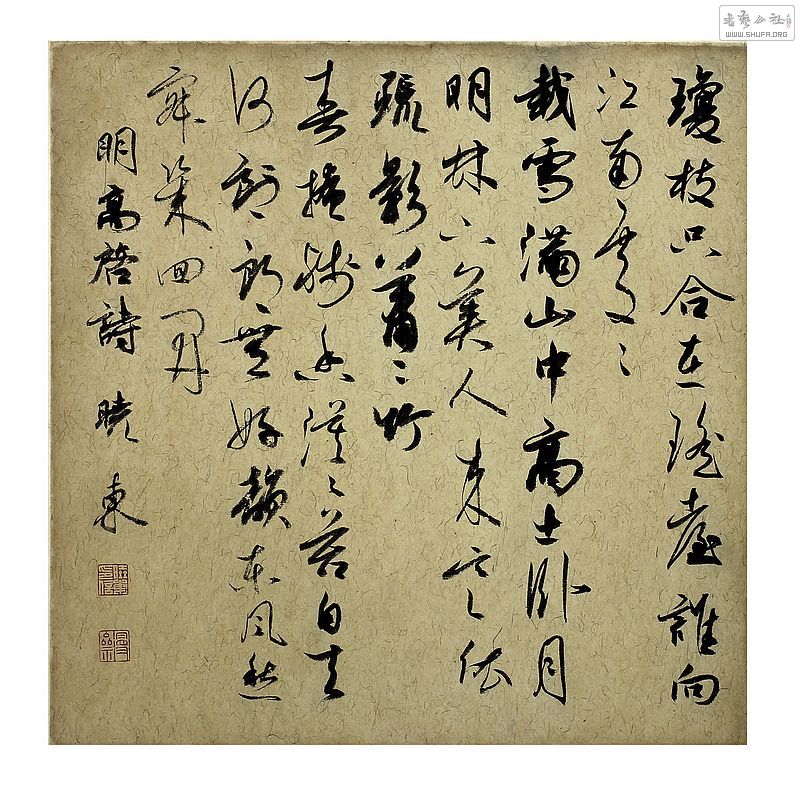 瓊枝只合在瑤臺誰向
江南處〻
栽雪滿山中高士卧月
明林下美人来寒依
疏影蕭〻竹
春掩殘香漠〻苔自去
何郎郎無好韻东風愁
寂幾回開
明高啓詩 曉東
书艺公社
WWW.SHUFA.ORG